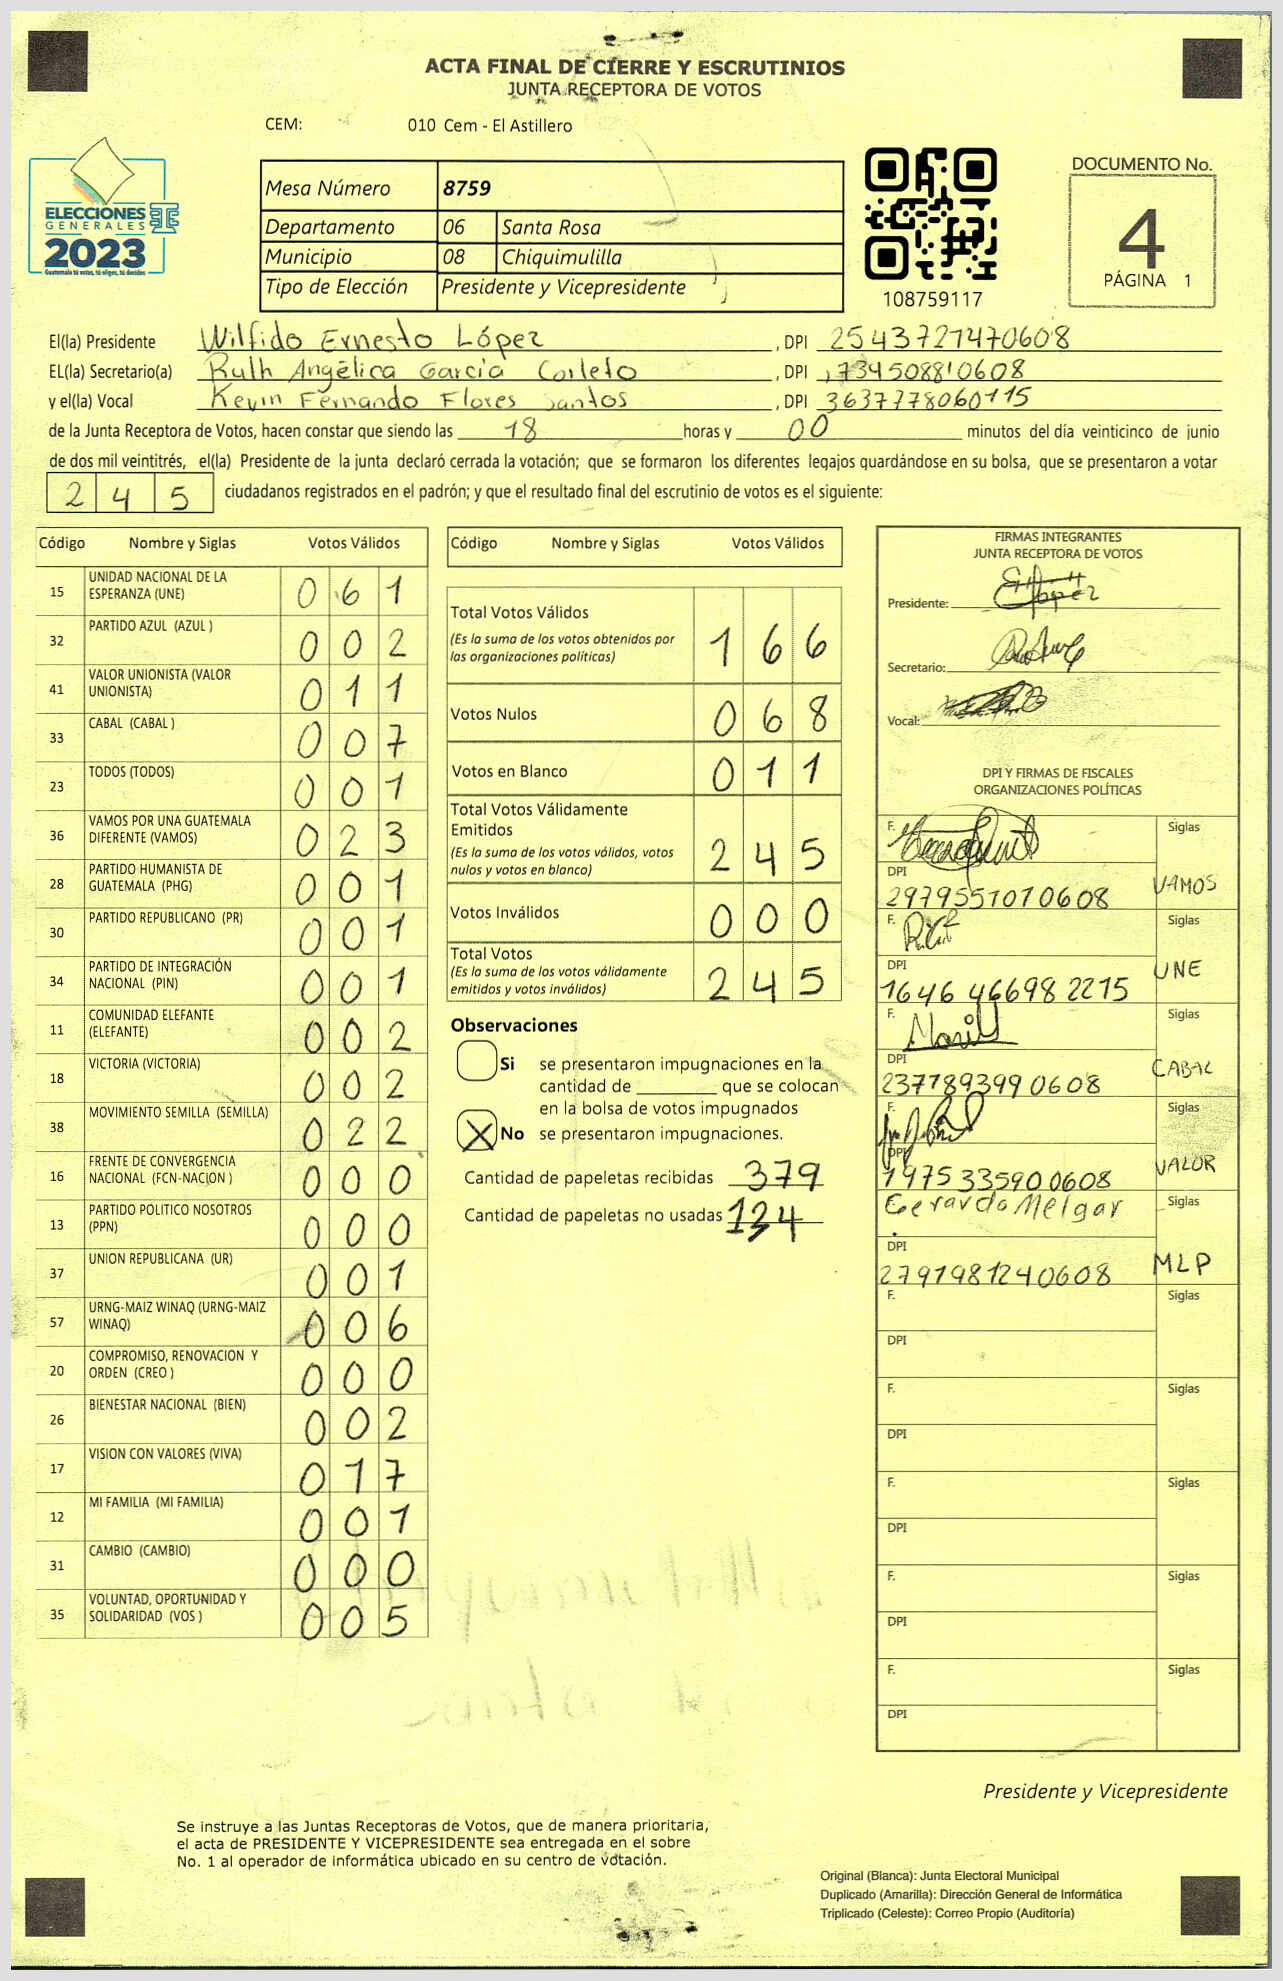 ACTA FINAL DE CIERRE Y ESCRUTINIOS
JUNTA RECEPTORA DE VOTOS
CEM: 010 Cem - El Astillero
ELECCIONES
GENERALES
2023
Guatemala tú votas, tú eliges, tú decides
Mesa Número 8759
Departamento 06 Santa Rosa
Municipio 08 Chiquimulilla
Tipo de Elección Presidente y Vicepresidente
108759117
DOCUMENTO No.
4
PÁGINA 1
El(la) Presidente Wilfido Ernesto López , DPI 2543721470608
EL(la) Secretario(a) Ruth Angélica García Corleto , DPI 1734508810608
y el(la) Vocal Kevin Fernando Flores Santos , DPI 3637778060115
de la Junta Receptora de Votos, hacen constar que siendo las 18 horas y 00 minutos del día veinticinco de junio
de dos mil veintitrés, el(la) Presidente de la junta declaró cerrada la votación; que se formaron los diferentes legajos guardándose en su bolsa, que se presentaron a votar
2 4 5 ciudadanos registrados en el padrón; y que el resultado final del escrutinio de votos es el siguiente:
Código Nombre y Siglas Votos Válidos
15 UNIDAD NACIONAL DE LA ESPERANZA (UNE) 0 6 1
32 PARTIDO AZUL (AZUL ) 0 0 2
41 VALOR UNIONISTA (VALOR UNIONISTA) 0 1 1
33 CABAL (CABAL ) 0 0 7
23 TODOS (TODOS) 0 0 1
36 VAMOS POR UNA GUATEMALA DIFERENTE (VAMOS) 0 2 3
28 PARTIDO HUMANISTA DE GUATEMALA (PHG) 0 0 1
30 PARTIDO REPUBLICANO (PR) 0 0 1
34 PARTIDO DE INTEGRACIÓN NACIONAL (PIN) 0 0 1
11 COMUNIDAD ELEFANTE (ELEFANTE) 0 0 2
18 VICTORIA (VICTORIA) 0 0 2
38 MOVIMIENTO SEMILLA (SEMILLA) 0 2 2
16 FRENTE DE CONVERGENCIA NACIONAL (FCN-NACION ) 0 0 0
13 PARTIDO POLITICO NOSOTROS (PPN) 0 0 0
37 UNION REPUBLICANA (UR) 0 0 1
57 URNG-MAIZ WINAQ (URNG-MAIZ WINAQ) 0 0 6
20 COMPROMISO, RENOVACION Y ORDEN (CREO ) 0 0 0
26 BIENESTAR NACIONAL (BIEN) 0 0 2
17 VISION CON VALORES (VIVA) 0 1 7
12 MI FAMILIA (MI FAMILIA) 0 0 1
31 CAMBIO (CAMBIO) 0 0 0
35 VOLUNTAD, OPORTUNIDAD Y SOLIDARIDAD (VOS ) 0 0 5
Código Nombre y Siglas Votos Válidos
Total Votos Válidos 1 6 6
(Es la suma de los votos obtenidos por
las organizaciones políticas)
Votos Nulos 0 6 8
Votos en Blanco 0 1 1
Total Votos Válidamente
Emitidos 2 4 5
(Es la suma de los votos válidos, votos
nulos y votos en blanco)
Votos Inválidos 0 0 0
Total Votos 2 4 5
(Es la suma de los votos válidamente
emitidos y votos inválidos)
Observaciones
Si se presentaron impugnaciones en la
cantidad de ________ que se colocan
en la bolsa de votos impugnados
X No se presentaron impugnaciones.
Cantidad de papeletas recibidas 379
Cantidad de papeletas no usadas 134
FIRMAS INTEGRANTES
JUNTA RECEPTORA DE VOTOS
Presidente: López
Secretario:
Vocal:
DPI Y FIRMAS DE FISCALES
ORGANIZACIONES POLÍTICAS
F. Siglas
DPI
2979551070608 VAMOS
F. Siglas
DPI
1646 46698 2215 UNE
F. Siglas
DPI
237789399 0608 CABAL
F. Siglas
DPI
1975 33590 0608 VALOR
Gerardo Melgar Siglas
DPI
2791981240608 MLP
F. Siglas
DPI
F. Siglas
DPI
F. Siglas
DPI
F. Siglas
DPI
F. Siglas
DPI
Presidente y Vicepresidente
Se instruye a las Juntas Receptoras de Votos, que de manera prioritaria,
el acta de PRESIDENTE Y VICEPRESIDENTE sea entregada en el sobre
No. 1 al operador de informática ubicado en su centro de votación.
Original (Blanca): Junta Electoral Municipal
Duplicado (Amarilla): Dirección General de Informática
Triplicado (Celeste): Correo Propio (Auditoría)